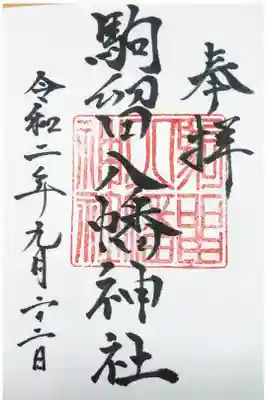 奉拝
駒留八幡神社
令和二年元月二十二日